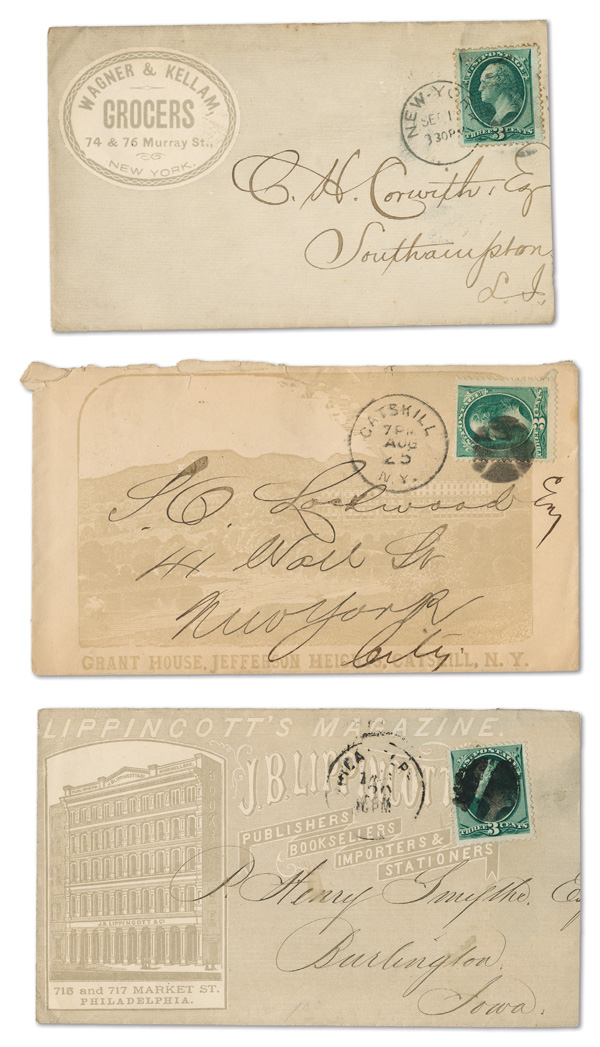 WAGNER & KELLAM,
GROCERS
74 & 76 Murray St.,
NEW YORK.
NEW-YO
SEP 1
3 30 PM
U.S. POSTAGE
THREE 3 CENTS
C. H. Corwith, Esq
Southampton
L. I.
CATSKILL
7 PM
AUG
25
N.Y.
POSTAGE
THREE
Lockwood Esq
41 Wall St
New York
City.
GRANT HOUSE, JEFFERSON HEIGHTS, CATSKILL, N. Y.
LIPPINCOTT'S MAGAZINE.
J. B. LIPPINCOTT
PUBLISHERS
BOOKSELLERS
IMPORTERS &
STATIONERS
U.S. POSTAGE
THREE 3 CENTS
P. Henry Smythe. Esq
Burlington.
Iowa.
J.B. LIPPINCOTT & CO.
715 and 717 MARKET ST.
PHILADELPHIA.